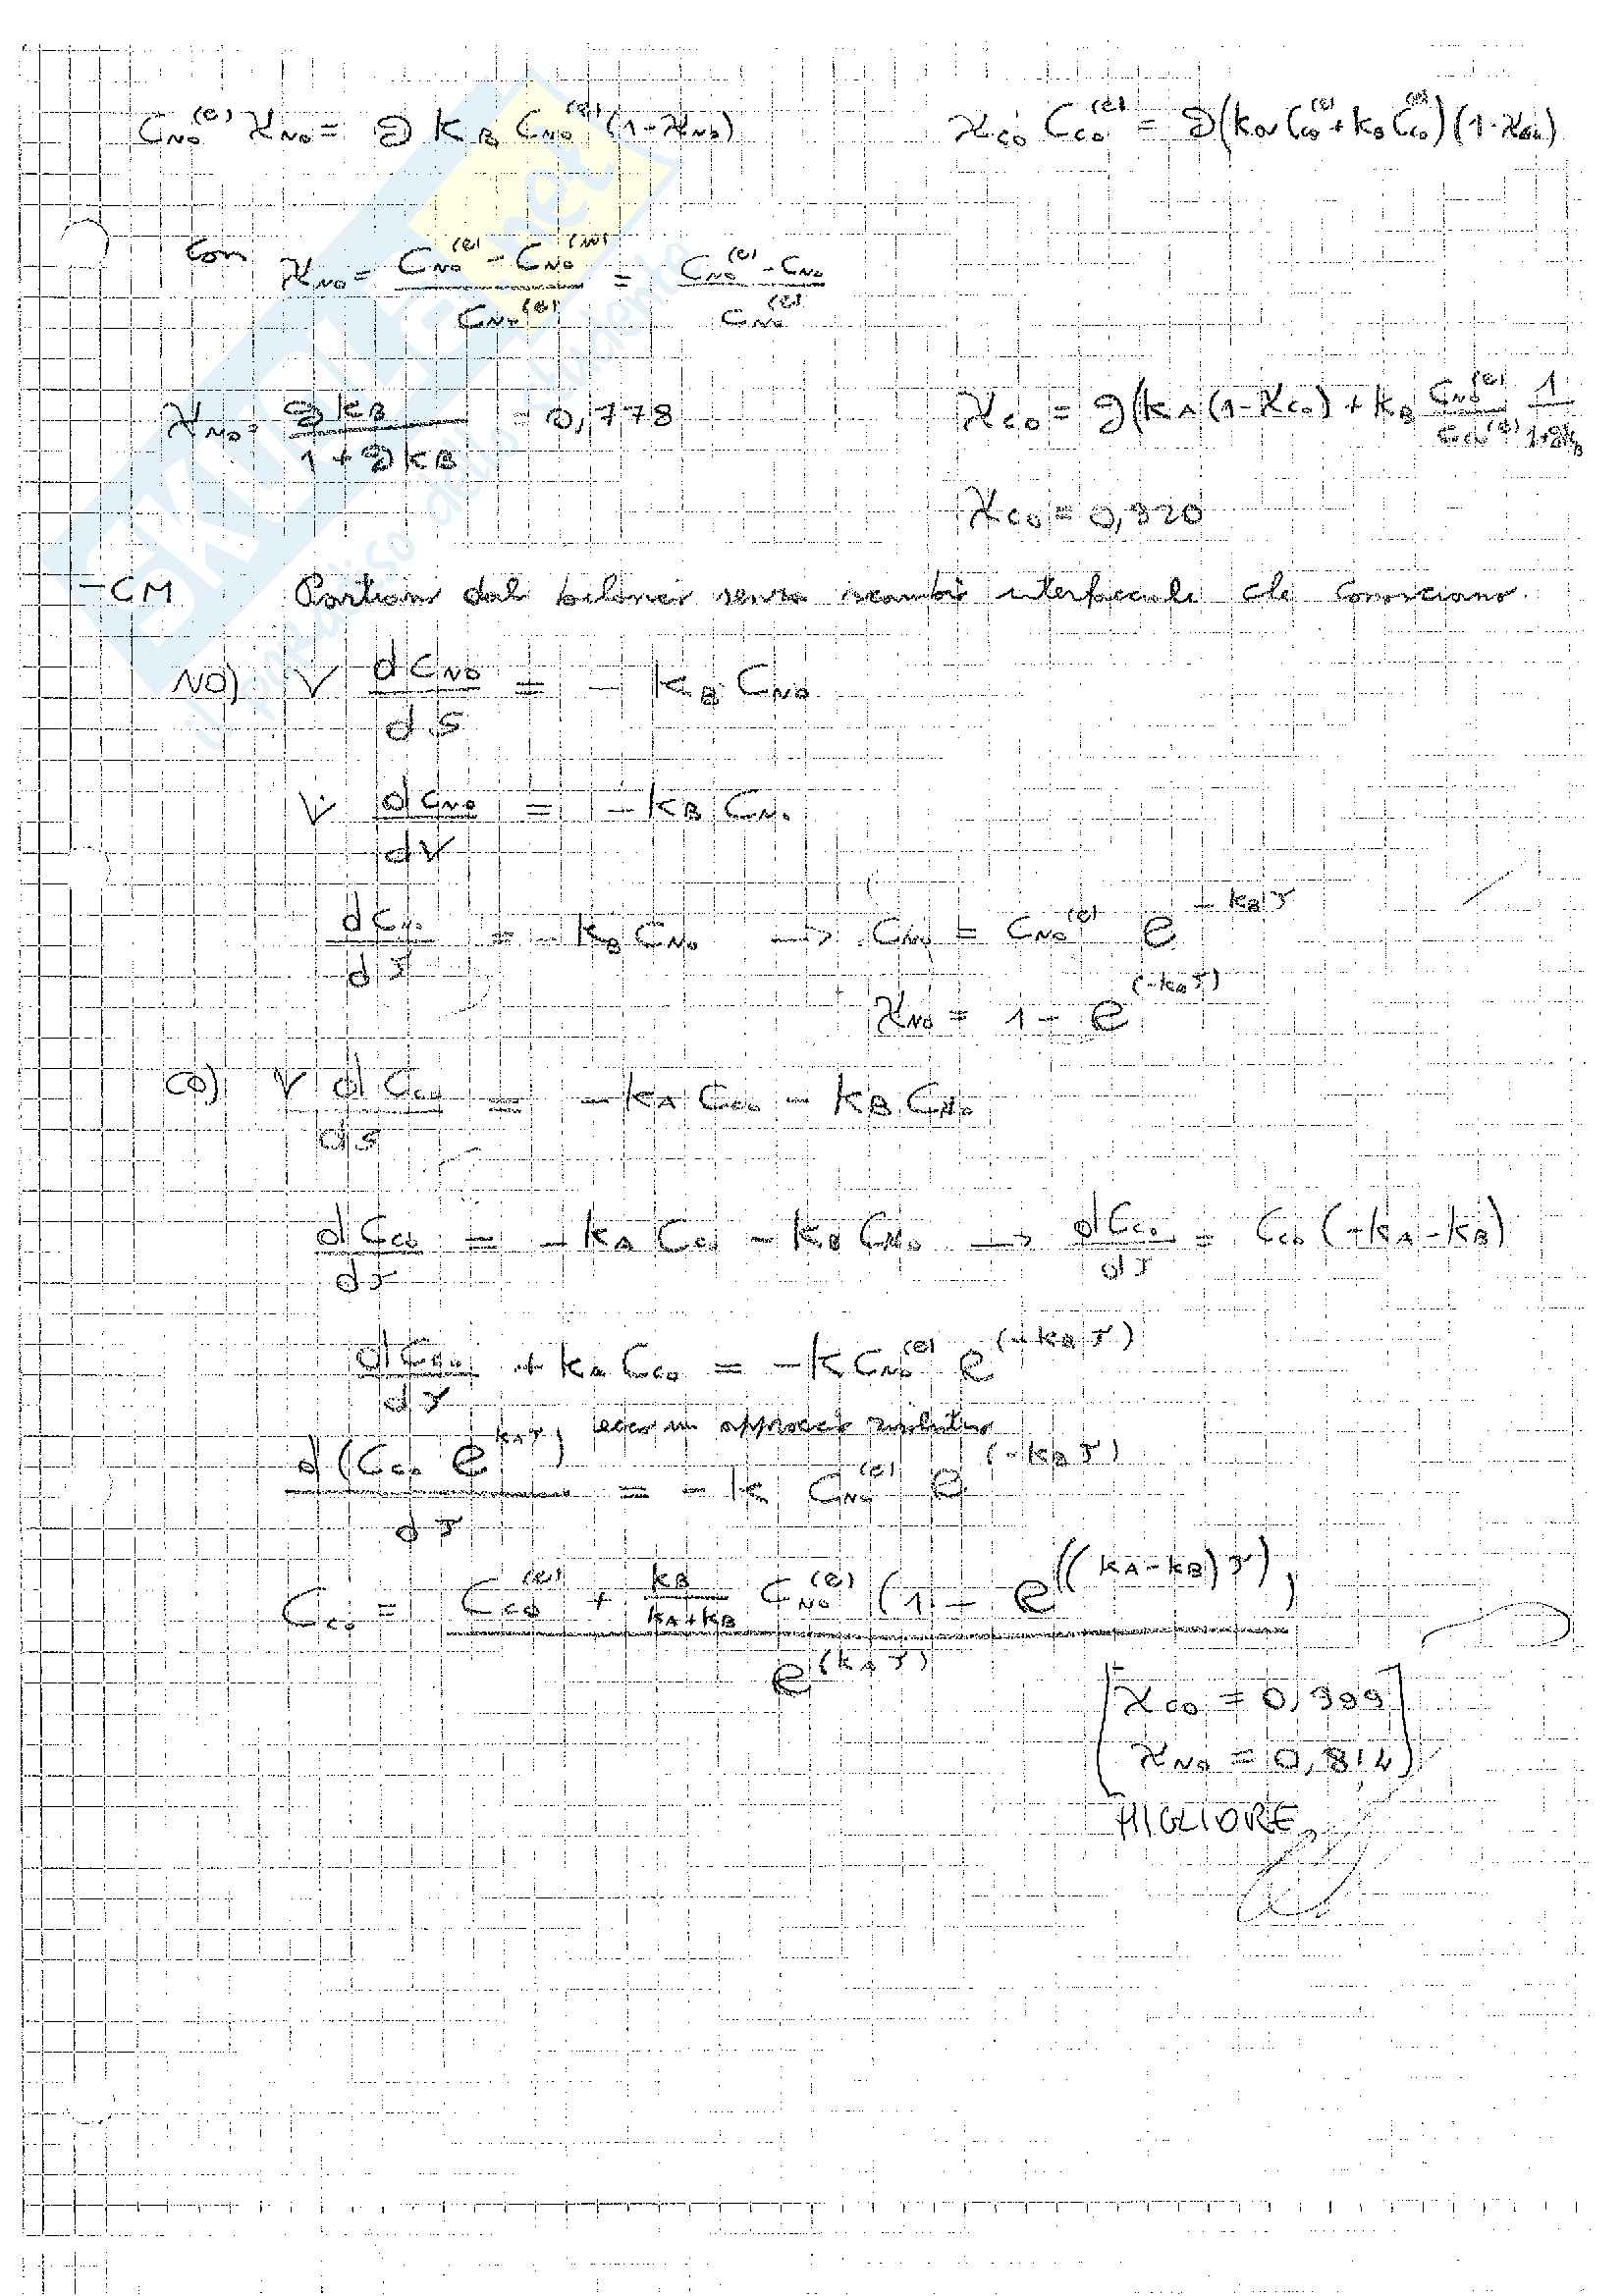 C_NO^(e) χ_NO = ϑ k_B C_NO^(e) (1-χ_NO)
χ_CO C_CO^(e) = ϑ(k_A C_CO^(e) + k_B C_CO^(e))(1-χ_CO)
con χ_NO = (C_NO^(e) - C_NO^(m)) / C_NO^(e) = (C_NO^(e) - C_NO) / C_NO^(e)
χ_NO = ϑ k_B / (1 + ϑ k_B) = 0,778
χ_CO = ϑ(k_A (1-χ_CO) + k_B C_NO^(e) / C_CO^(e) 1 / (1+ϑk_B)
χ_CO = 0,920
- CM Partiamo dal bilancio senza scambi interfacciali che conosciamo
NO) V dC_NO / dS = - k_B C_NO
V̇ dC_NO / dV = - k_B C_NO
dC_NO / dτ = - k_B C_NO → C_NO = C_NO^(e) e^(-k_B τ)
χ_NO = 1 - e^(-k_B τ)
CO) V dC_CO / dS = - k_A C_CO - k_B C_NO
dC_CO / dτ = - k_A C_CO - k_B C_NO → dC_CO / dτ = C_CO (-k_A - k_B)
dC_CO / dτ + k_A C_CO = - k C_NO^(e) e^(-k_B τ)
ecco un approccio risolutivo
d(C_CO e^(k_A τ)) / dτ = - k C_NO^(e) e^(-k_B τ)
C_CO = (C_CO^(e) + k_B / (k_A + k_B) C_NO^(e) (1 - e^((k_A - k_B) τ))) / e^(k_A τ)
[χ_CO = 0,999]
[χ_NO = 0,814]
MIGLIORE